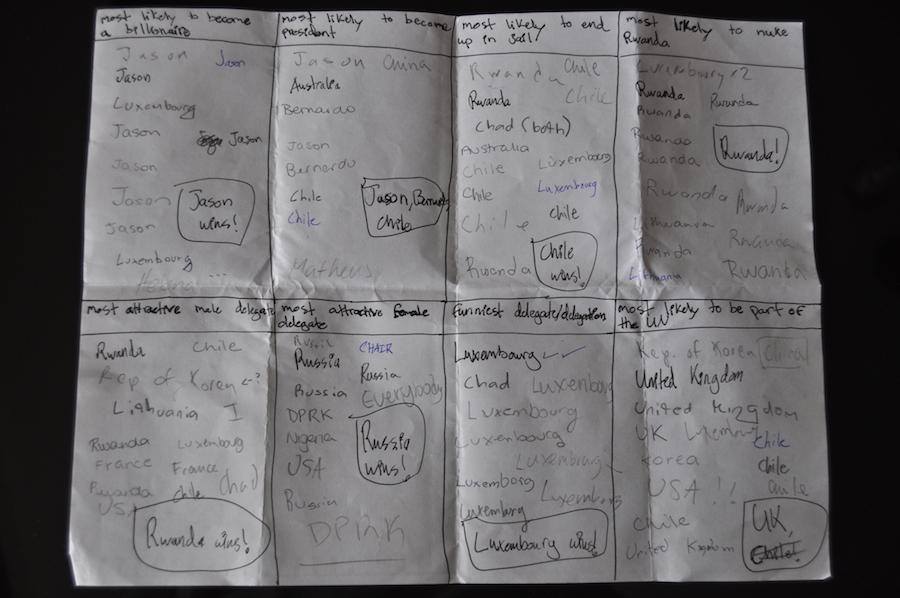 most likely to become
a billionaire
Jason Jason
Jason
Luxembourg
Jason
Jason
Jason
Jason
Jason
Luxembourg
Jason
wins!
most likely to become
president
Jason China
Australia
Bernardo
Jason
Bernardo
Chile
Chile
Matheus
Jason, Bernardo,
Chile
most likely to end
up in jail!
Rwanda Chile
Rwanda Chile
Chad (both)
Australia
Chile Luxembourg
Chile Luxembourg
Chile Chile
Rwanda
Chile
wins!
most likely to nuke
Rwanda
Luxembourg x2
Rwanda Rwanda
Rwanda
Rwanda
Rwanda
Rwanda Rwanda
Lithuania
Rwanda Rwanda
Lithuania Rwanda
Rwanda!
most attractive male delegate
Rwanda Chile
Rep of Korea ←?
Lithuania I
Rwanda Luxembourg
France France
Rwanda Chile Chad
USA
Rwanda wins!
most attractive female
delegate
Russia CHAIR
Russia Russia
Russia Everybody
DPRK
Nigeria
USA
Russia
DPRK
Russia
wins!
funniest delegate/delegation
Luxembourg
Chad Luxembourg
Luxembourg
Luxembourg
Luxembourg
Luxemborg
Luxemburg Luxemborg
Luxembourg wins!
most likely to be part of
the
Rep. of Korea China
United Kingdom
United Kingdom
UK Luxembourg
Chile
Korea Chile
USA!! Chile
Chile
United Kingdom
UK,
Chile!